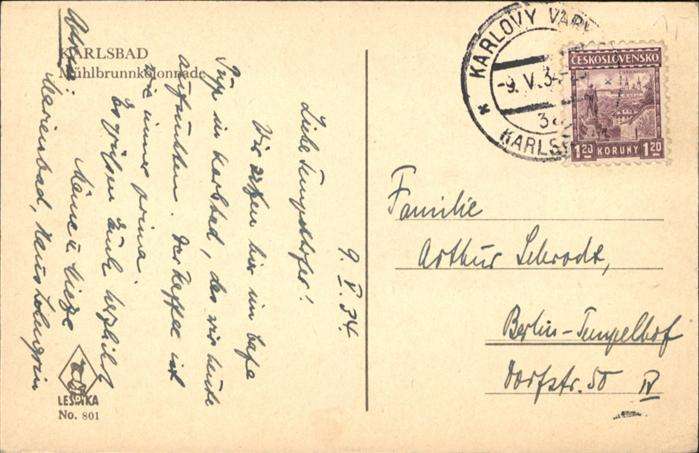 KARLSBAD
Mühlbrunnkolonnade
9. V. 34
Liebe Tempelhofer!
Wir sitzen hier im Café
Pupp in Karlsbad, das wir heute
aufsuchten. Der Kaffee ist
wie immer prima.
Es grüßen Euch herzlich
Mieze
Marienbad, Haus Lohengrin
LESTKA
No. 801
* KARLOVY VARY
-9. V. 34
KARLSBAD
ČESKOSLOVENSKO
1.20 KORUNY 1.20
Familie
Arthur Schrodt,
Berlin-Tempelhof
Dorfstr. 50 IV